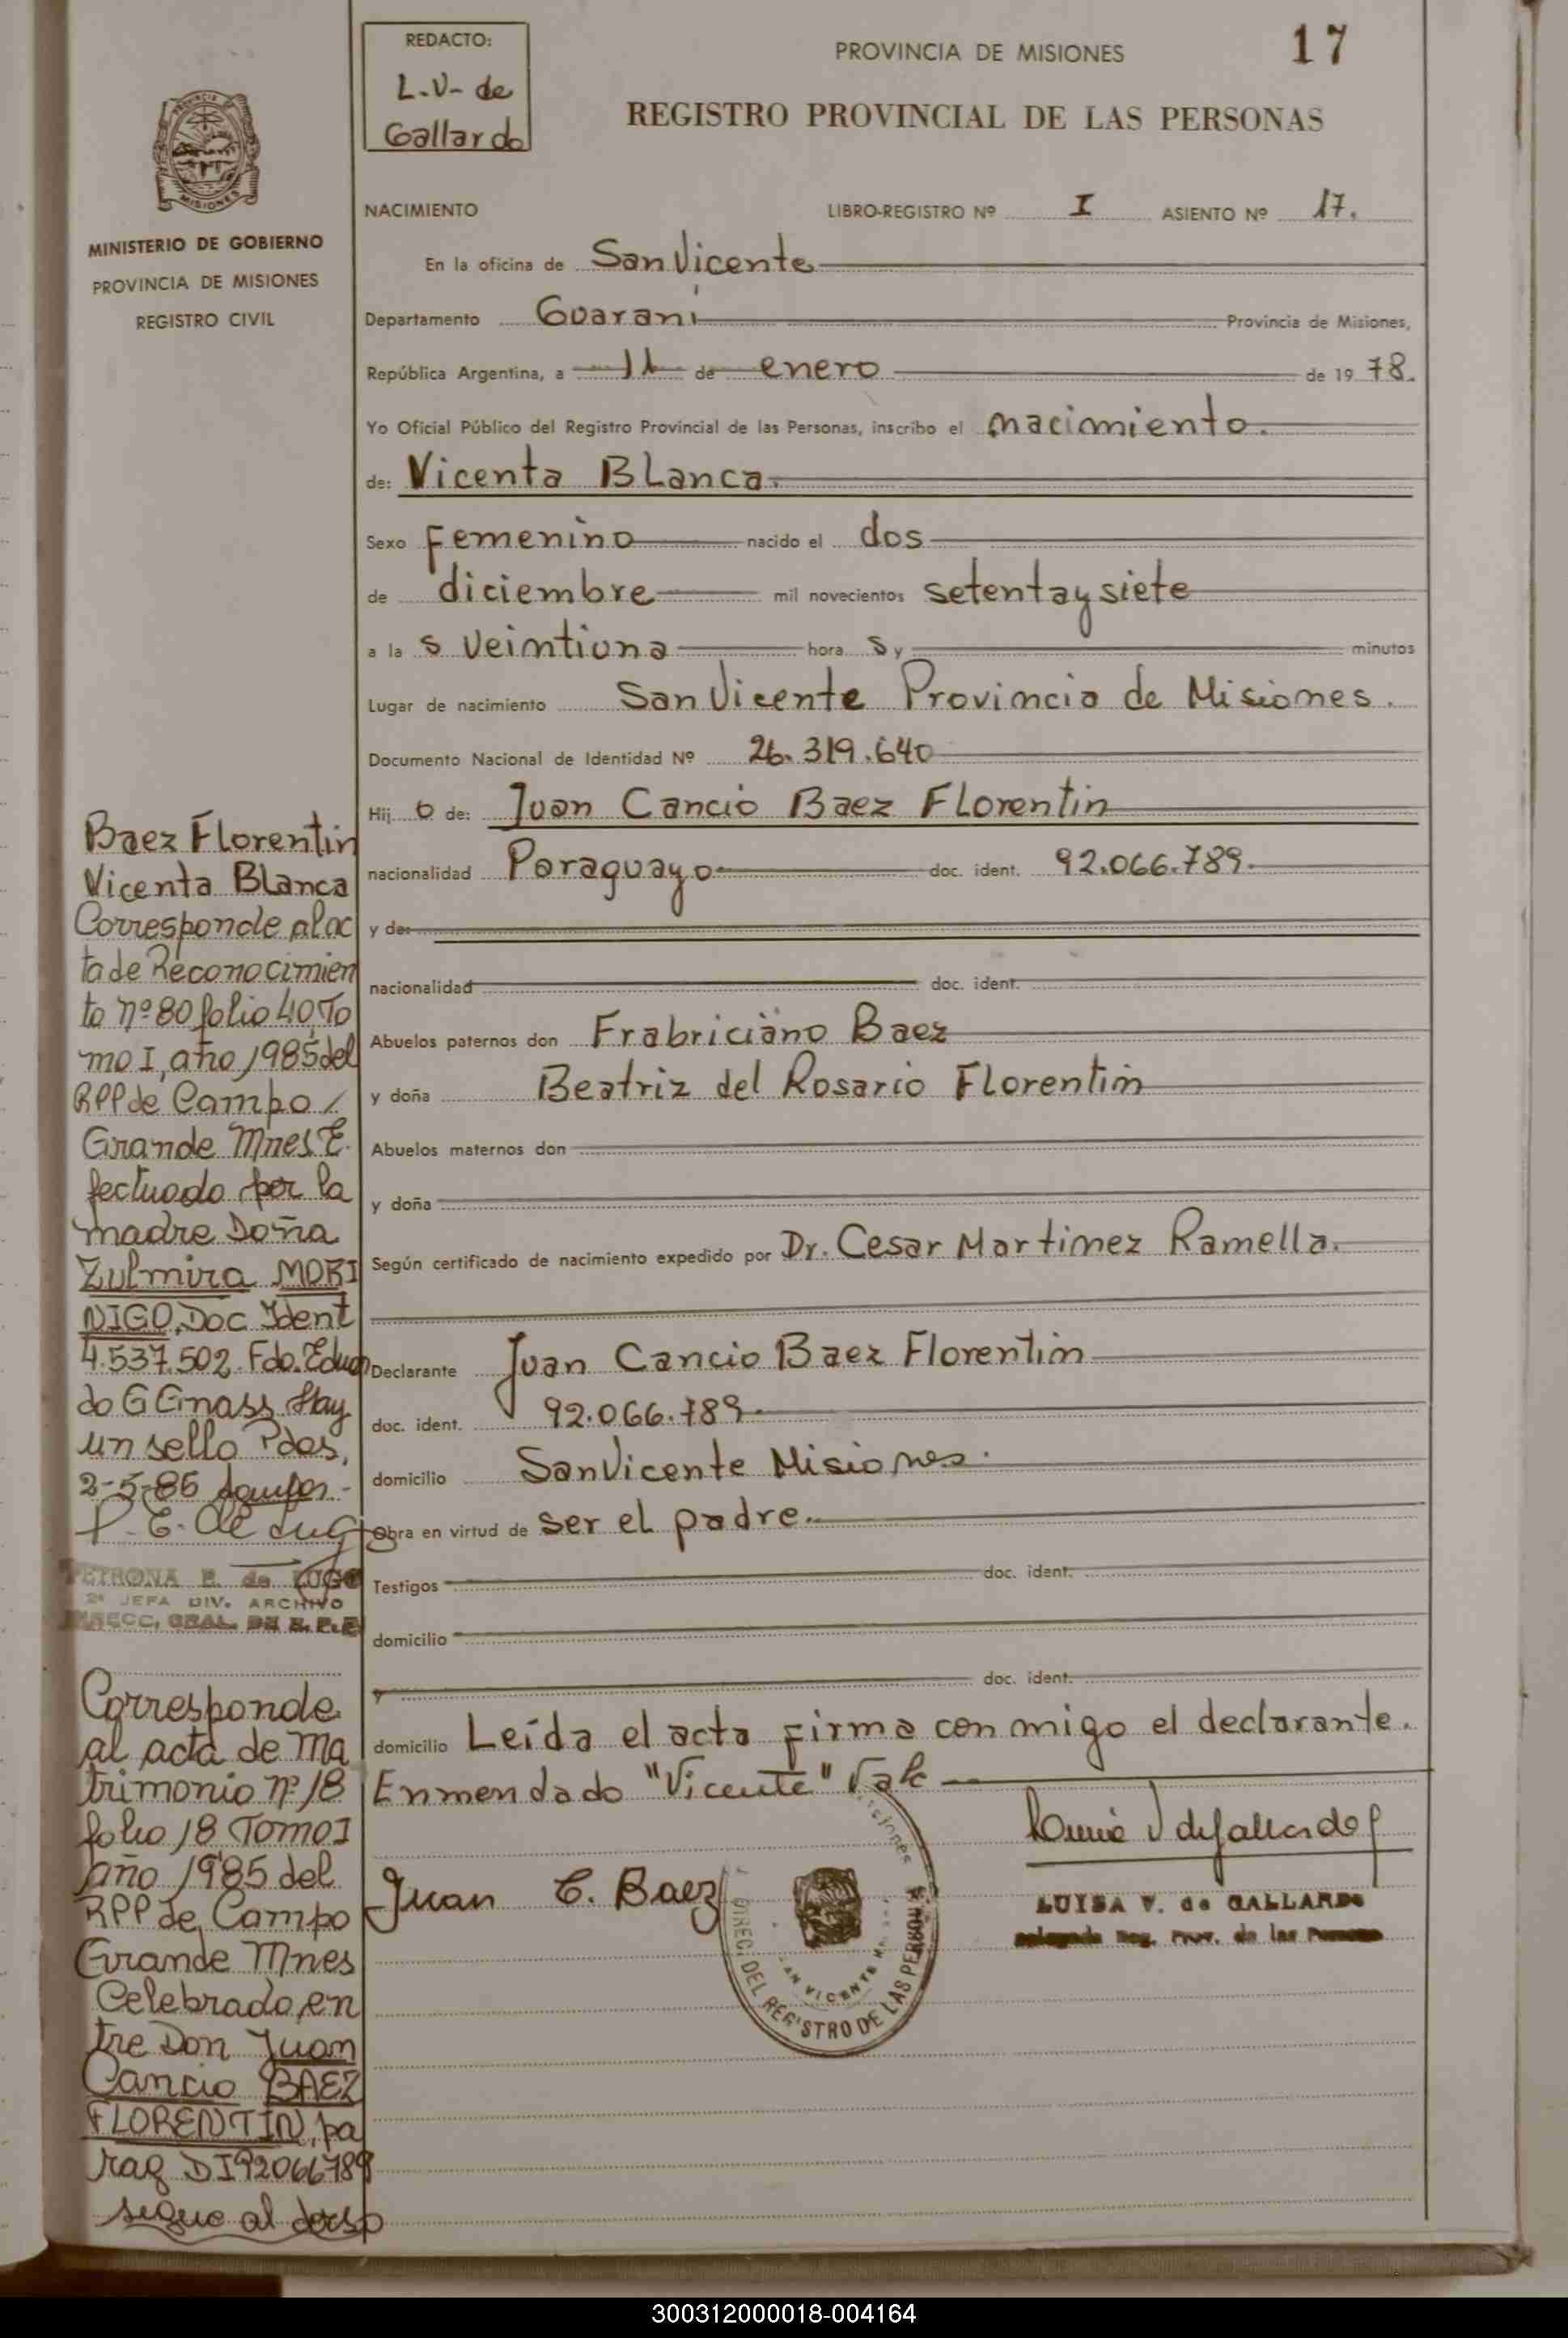 REDACTO:
L.V- de
Gallardo
PROVINCIA DE MISIONES
17
REGISTRO PROVINCIAL DE LAS PERSONAS
MISIONES
MINISTERIO DE GOBIERNO
PROVINCIA DE MISIONES
REGISTRO CIVIL
NACIMIENTO LIBRO-REGISTRO Nº I ASIENTO Nº 17.
En la oficina de San Vicente
Departamento Guarani Provincia de Misiones,
República Argentina, a 11 de enero de 19 78.
Yo Oficial Público del Registro Provincial de las Personas, inscribo el nacimiento.
de: Vicenta Blanca.
Sexo Femenino nacido el dos
de diciembre mil novecientos setenta y siete
a la s veintiuna hora s y minutos
Lugar de nacimiento San Vicente Provincia de Misiones.
Documento Nacional de Identidad Nº 26.319.640
Hij o de: Juan Cancio Baez Florentin
nacionalidad Paraguayo doc. ident. 92.066.789.
y de:
nacionalidad doc. ident.
Abuelos paternos don Frabriciano Baez
y doña Beatriz del Rosario Florentin
Abuelos maternos don
y doña
Según certificado de nacimiento expedido por Dr. Cesar Martinez Ramella.
Declarante Juan Cancio Baez Florentin
doc. ident. 92.066.789.
domicilio San Vicente Misiones.
Obra en virtud de ser el padre.
Testigos doc. ident.
domicilio
y doc. ident.
domicilio Leída el acta firma con migo el declarante.
Enmendado "Vicente" Vale
Juan C. Baez
DIREC. DEL REGISTRO DE LAS PERSONAS
SAN VICENTE
LUISA V. de GALLARDO
Delegada Reg. Prov. de las Personas
Baez Florentin
Vicenta Blanca
Corresponde al ac
ta de Reconocimien
to nº 80 folio 40, To
mo I, año 1985 del
RPP de Campo
Grande Mnes E.
fectuado por la
madre Doña
Zulmira MORI
NIGO, Doc Ident
4.537.502. Fdo. Eduar
do G Gmass. Hay
un sello Pdas,
2-5-86
P. E. de Lugo
PETRONA E. de LUGO
2ª JEFA DIV. ARCHIVO
DIRECC. GRAL. DE R. P. P.
Corresponde
al acta de Ma
trimonio nº 18
folio 18 Tomo I
año 1985 del
RPP de Campo
Grande Mnes
Celebrado, en
tre Don Juan
Cancio BAEZ
FLORENTIN, pa
rag DI 92066789
sigue al dorso
300312000018-004164